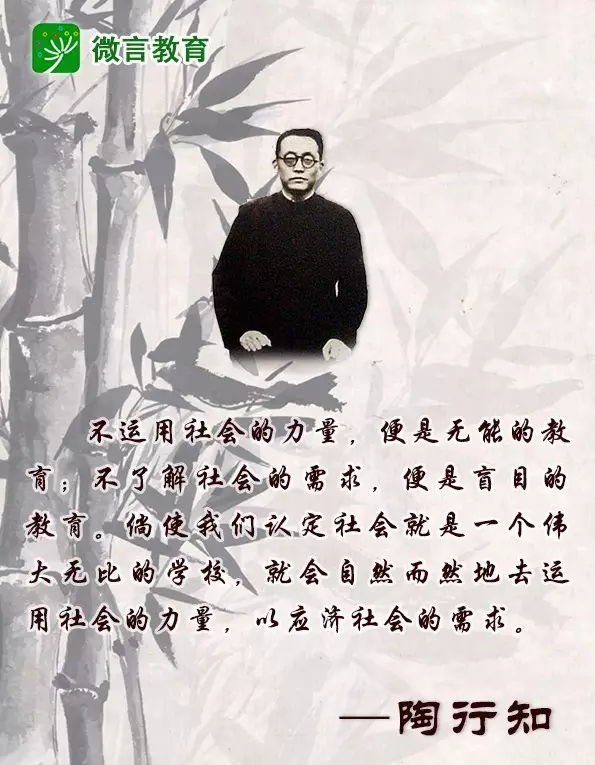 微言教育
不运用社会的力量，便是无能的教
育；不了解社会的需求，便是盲目的
教育。倘使我们认定社会就是一个伟
大无比的学校，就会自然而然地去运
用社会的力量，以应济社会的需求。
—陶行知